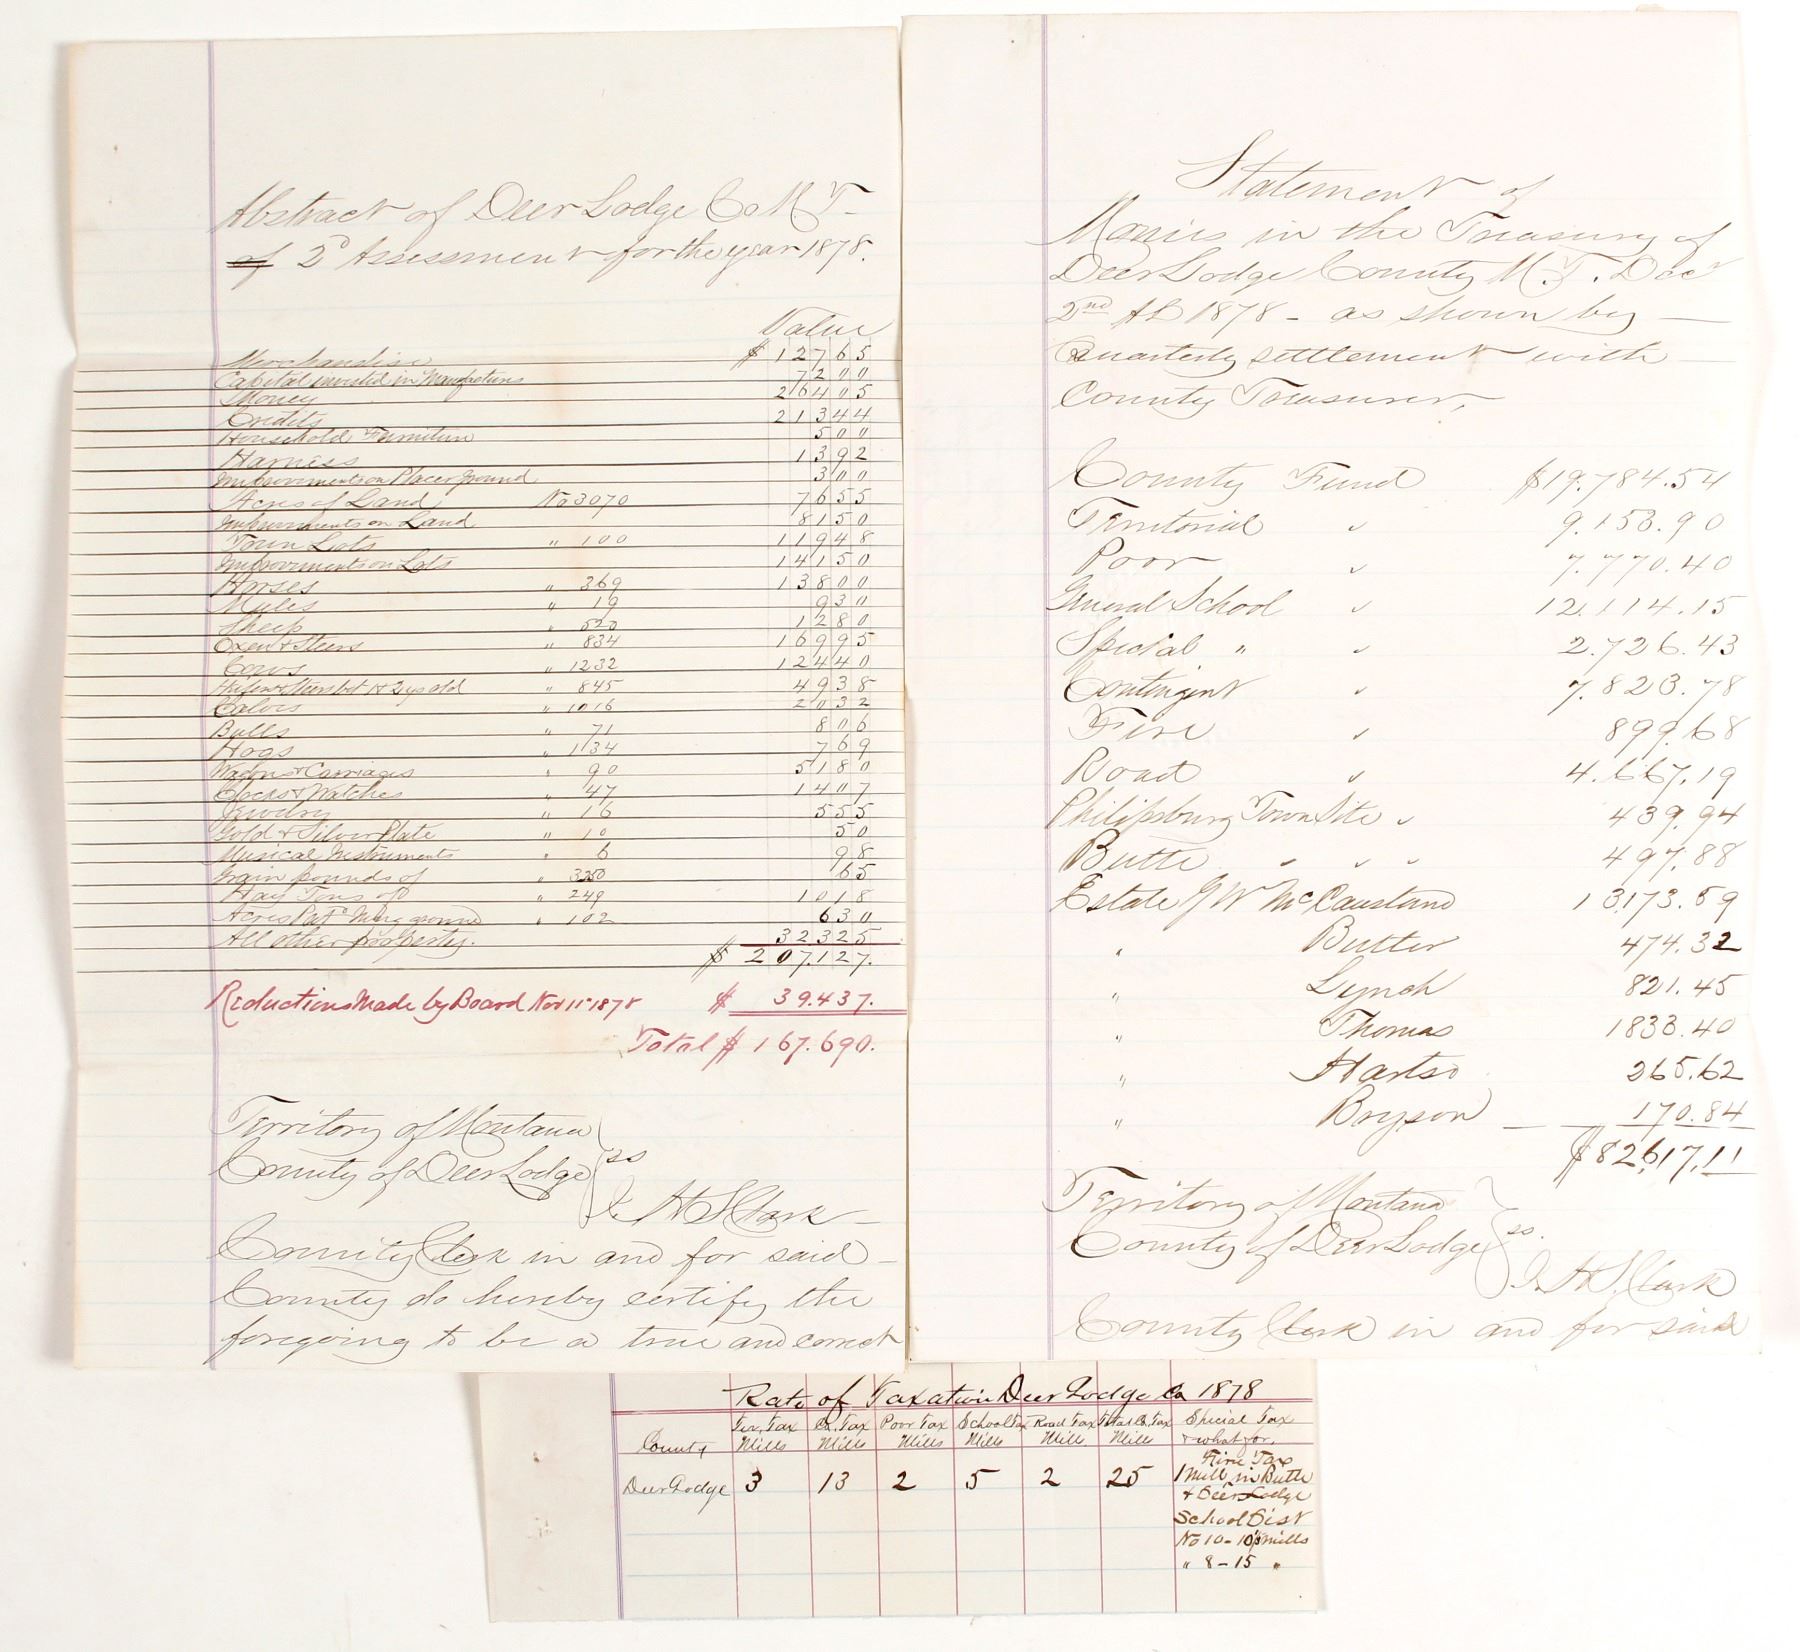 Abstract of Deer Lodge Co M T
of 2d Assessment for the year 1878.
Value
Merchandise $ 12765
Capital invested in Manufactures 7200
Money 26405
Credits 21344
Household Furniture 500
Harness 1392
Improvements on Placer ground 300
Acres of Land No 3070 7655
Improvements on Land 8150
Town Lots " 100 11948
Improvements on Lots 14150
Horses " 369 13800
Mules " 19 930
Sheep " 520 1280
Oxen & Steers " 834 16995
Cows " 1232 12440
Heifers & Steers bet 1 & 2 ys old " 845 4938
Calves " 1016 2032
Bulls " 71 806
Hogs " 134 769
Wagons & Carriages " 90 5180
Clocks & Watches " 47 1407
Jewelry " 16 555
Gold & Silver Plate " 10 50
Musical Instruments " 6 98
Grain pounds of " 3250 65
Hay Tons of " 249 1018
Acres Patd Ming ground " 102 630
All other property. 32325
$ 207.127.
Reductions Made by Board Nov 11" 1878 $ 39.437.
Total $ 167.690.
Territory of Montana
County of Deer Lodge } ss
I. H S Clark
County Clerk in and for said
County do hereby certify the
foregoing to be a true and correct
Statement of
Monies in the Treasury of
Deer Lodge County M. T. Dec
2nd AD 1878 - as shown by
Quarterly settlement with
County Treasurer,
County Fund $19.784.54
Territorial " 9.153.90
Poor " 7.770.40
General School " 12.114.15
Special " " 2.726.43
Contingent " 7.823.78
Fire " 899.68
Road " 4.667.19
Philipsburg Town Site " 439.94
Butte " " " 497.88
Estate G W McCausland 13173.59
" Butter 474.32
" Lynch 821.45
" Thomas 1833.40
" Hartso 265.62
" Bryson 170.84
$82617.11
Territory of Montana
County of Deer Lodge } ss.
I. H S. Clark
County Clerk in and for said
Rate of Taxation Deer Lodge Co 1878
County Ter. Tax Mills Co. Tax Mills Poor Tax Mills School Tax Mills Road Tax Mill Total Co. Tax Mill Special Tax & what for.
Deer Lodge 3 13 2 5 2 25 Fire Tax
1 Mill in Butte
& Deer Lodge
School Dist
No 10 - 10 1/3 mills
" 8 - 15 "